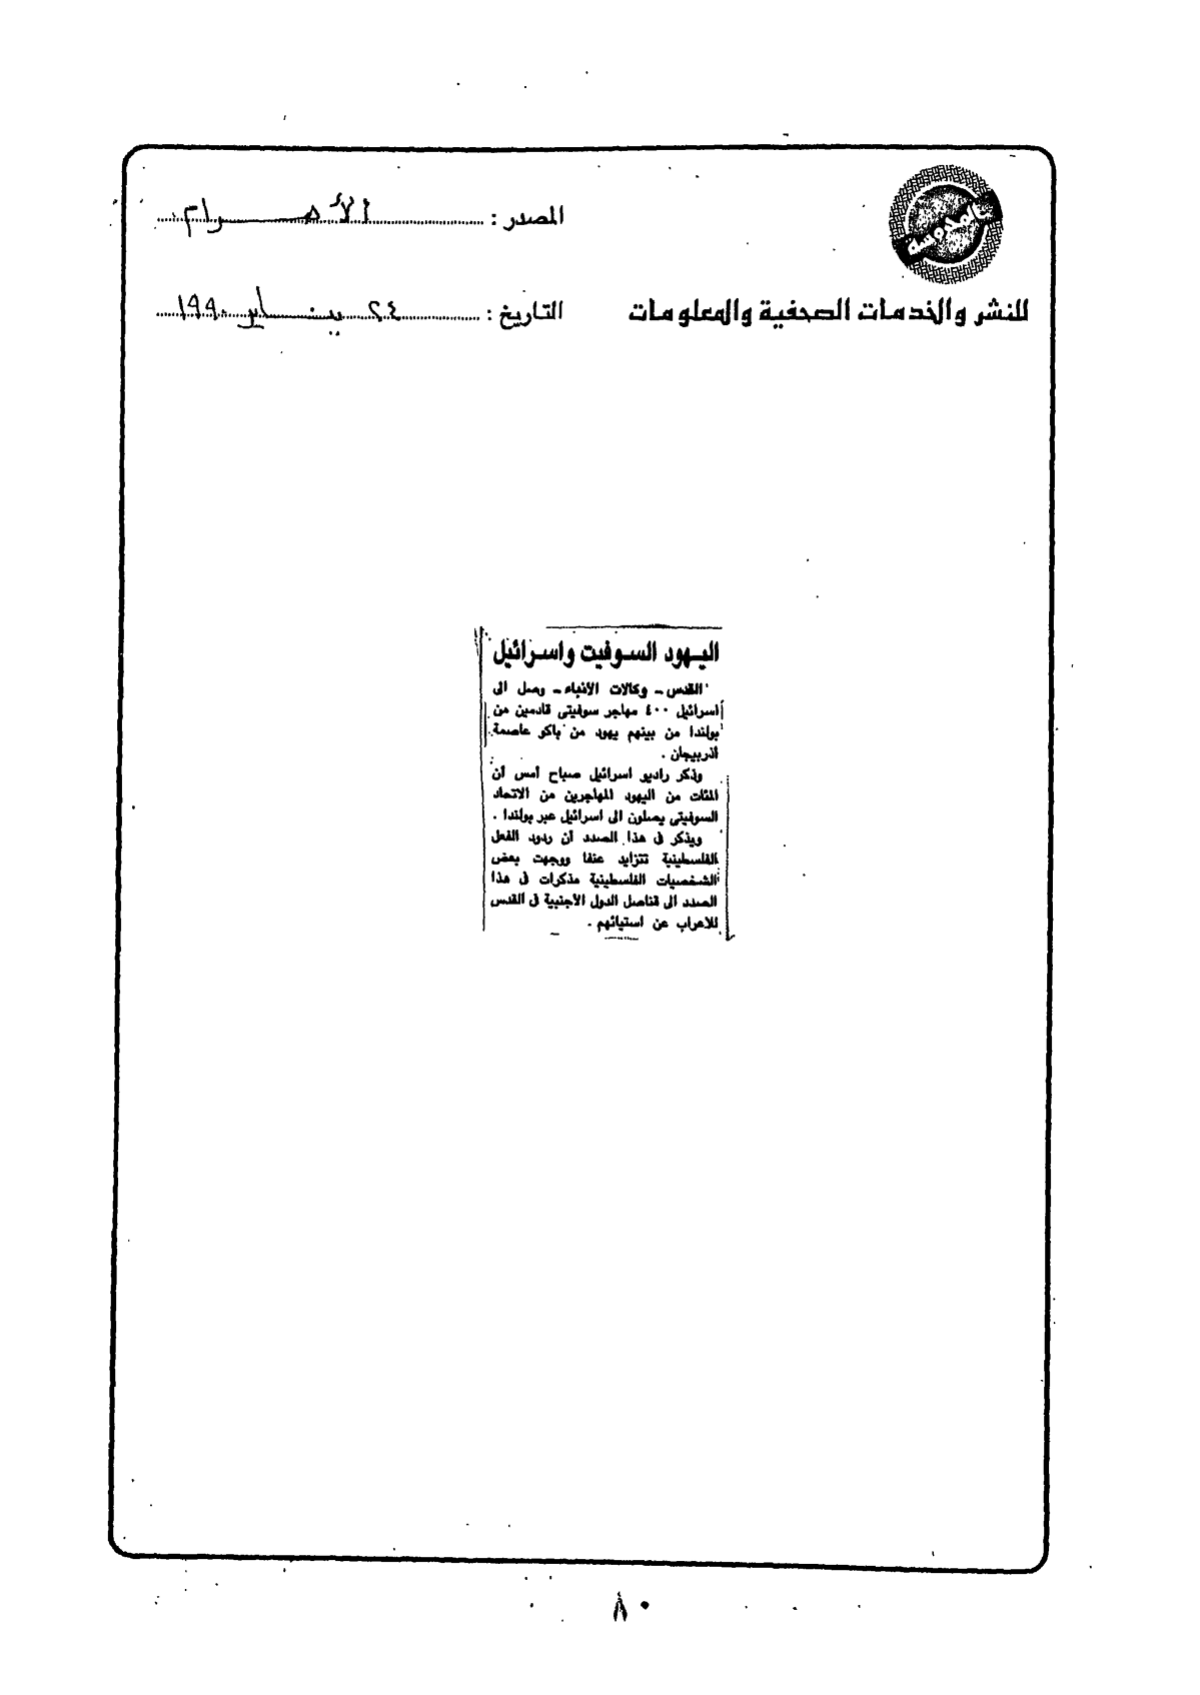 المحروسة
المصدر : الأهرام
للنشر والخدمات الصحفية والمعلومات
التاريخ : ٢٤ يناير ١٩٩٠
اليهود السوفيت واسرائيل
القدس ـ وكالات الأنباء ـ وصل الى
اسرائيل ٤٠٠ مهاجر سوفيتى قادمين من
بولندا من بينهم يهود من باكو عاصمة
اذربيجان .
وذكر راديو اسرائيل صباح أمس أن
المئات من اليهود المهاجرين من الاتحاد
السوفيتى يصلون الى اسرائيل عبر بولندا .
ويذكر فى هذا الصدد أن ردود الفعل
الفلسطينية تتزايد عنفا ووجهت بعض
الشخصيات الفلسطينية مذكرات فى هذا
الصدد الى قناصل الدول الأجنبية فى القدس
للاعراب عن استيائهم .
٨٠